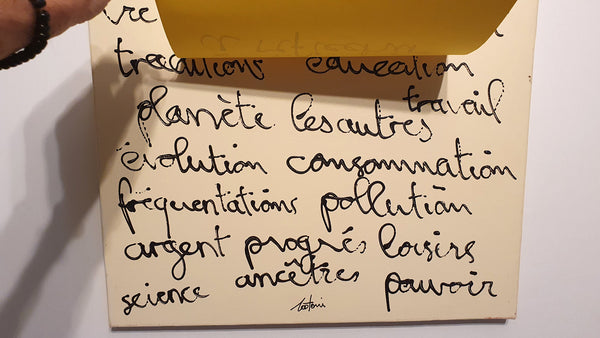 traditions education
planète les autres travail
évolution consommation
fréquentations pollution
argent progrés loisirs
science ancêtres pouvoir